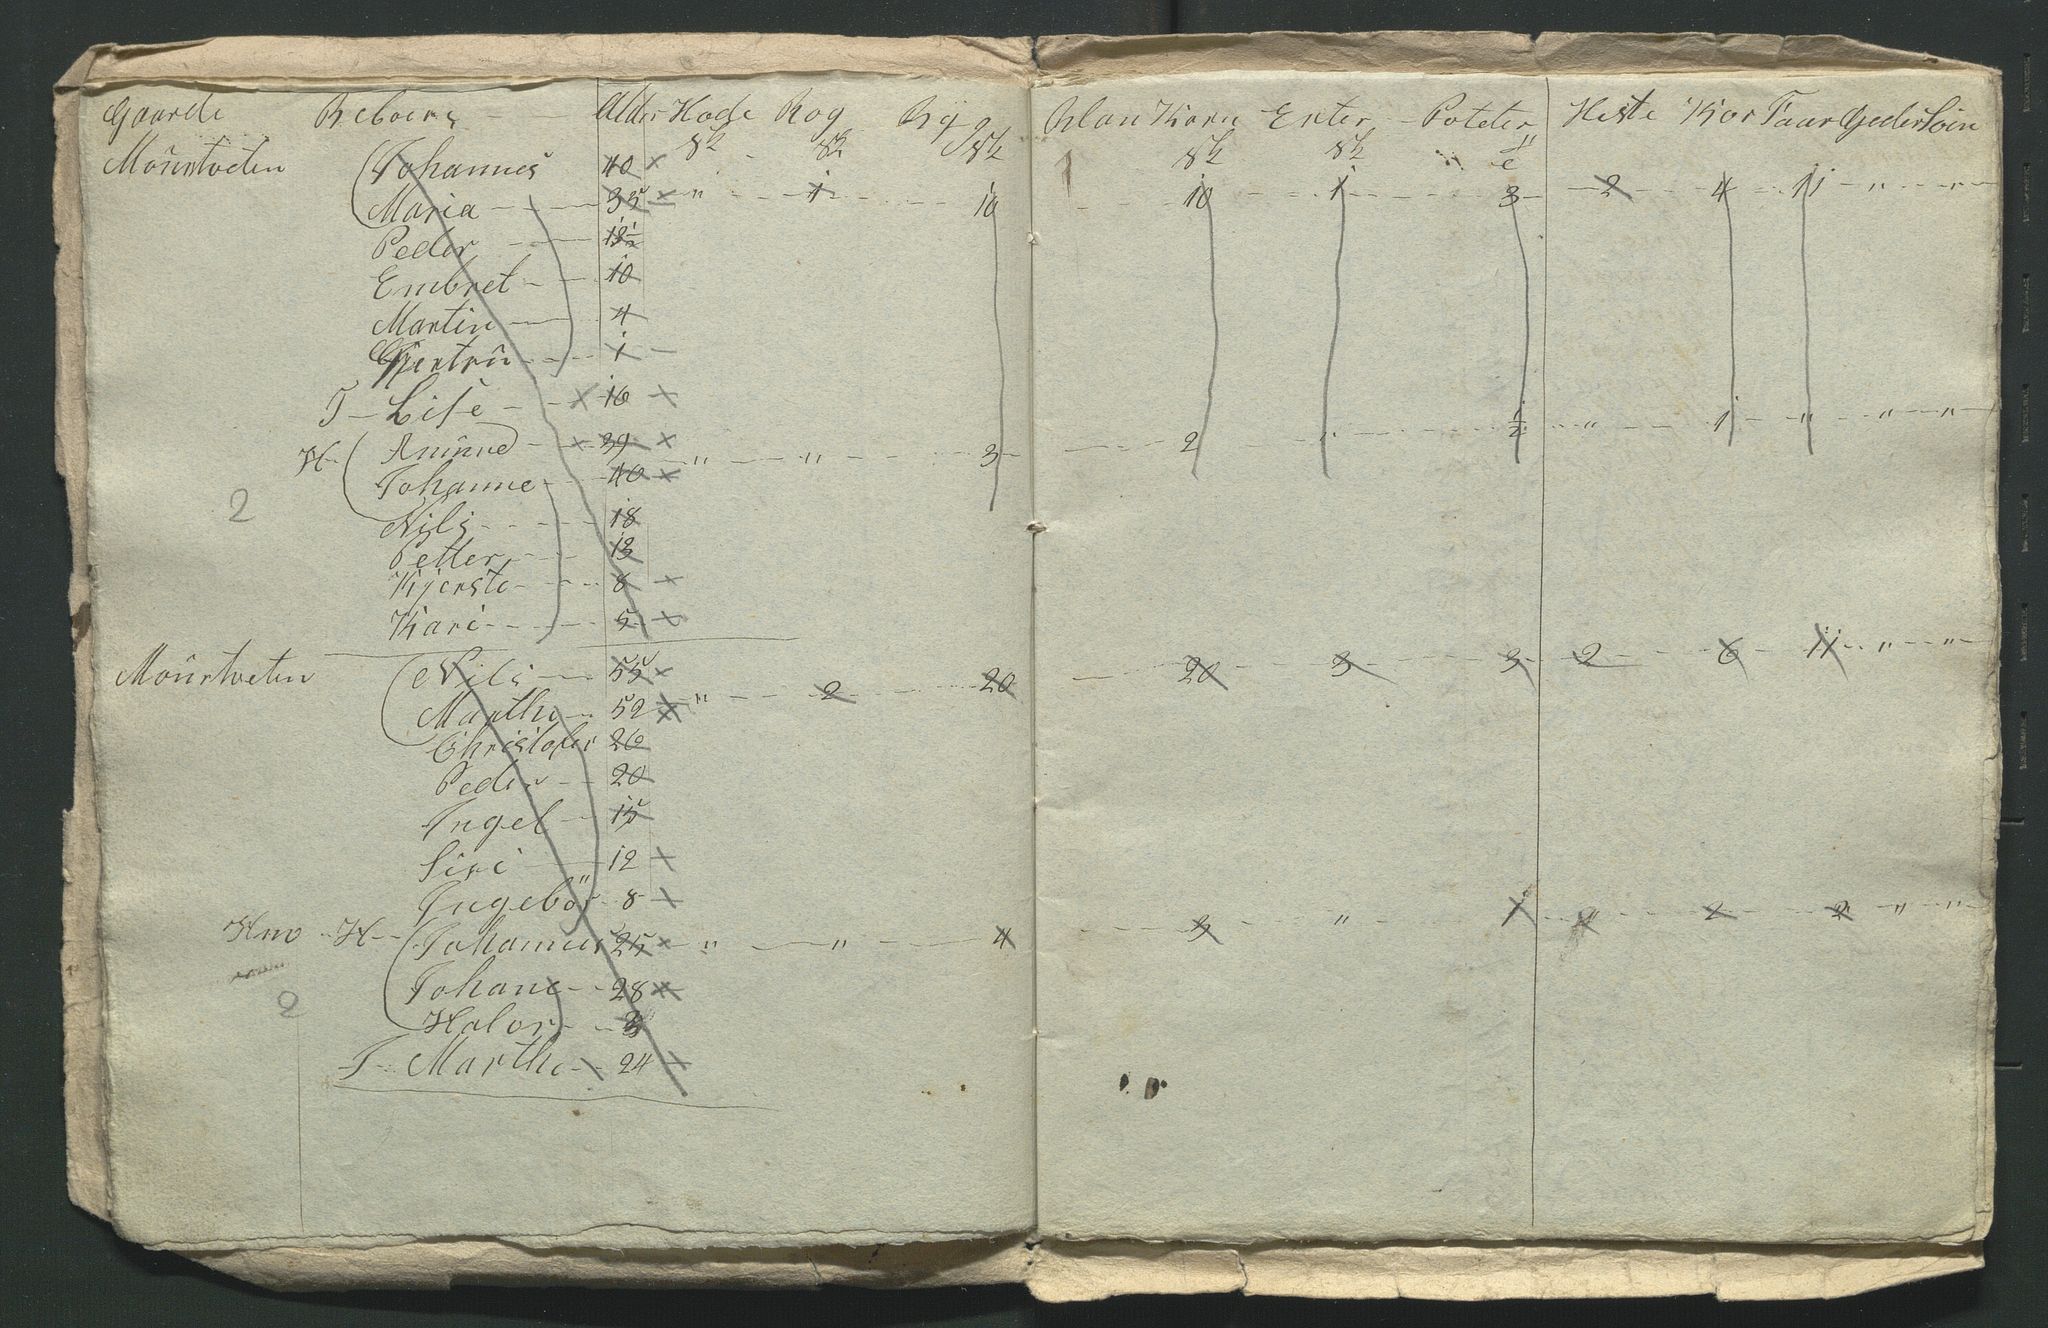 Gaarde Beboere Alder Hvede Rog Byg Blan Korn Erter Poteter Heste Kior Faar Geder Svin
Mörstveten Johannes 40
Maria 35 " 1 10 10 1 3 2 4 11 " "
Peder 13½
Embret 10
Martin 4
Gjertru 1
T Lise 16
H Amund 39 " " 3 2 " ½ " 1 " " "
Johanne 40
2 Nils 18
Petter 13
Kjerste 8
Kari 5
Mörstveten Nils 55
Marthe 52 " 2 20 20 3 3 2 6 11 " "
Christofer 26
Peder 20
Ingel 15
Siri 12
Ingebör 8
H Johannes 25 " " 4 3 " 1 2 2 " "
2 Johane 28
Halvor 3
T Marthe 24